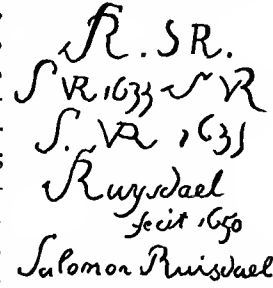 SR. SR.
S VR. 1633 S VR
S. VR 1635
SRuysdael
fecit 1650
Salomon Ruisdael